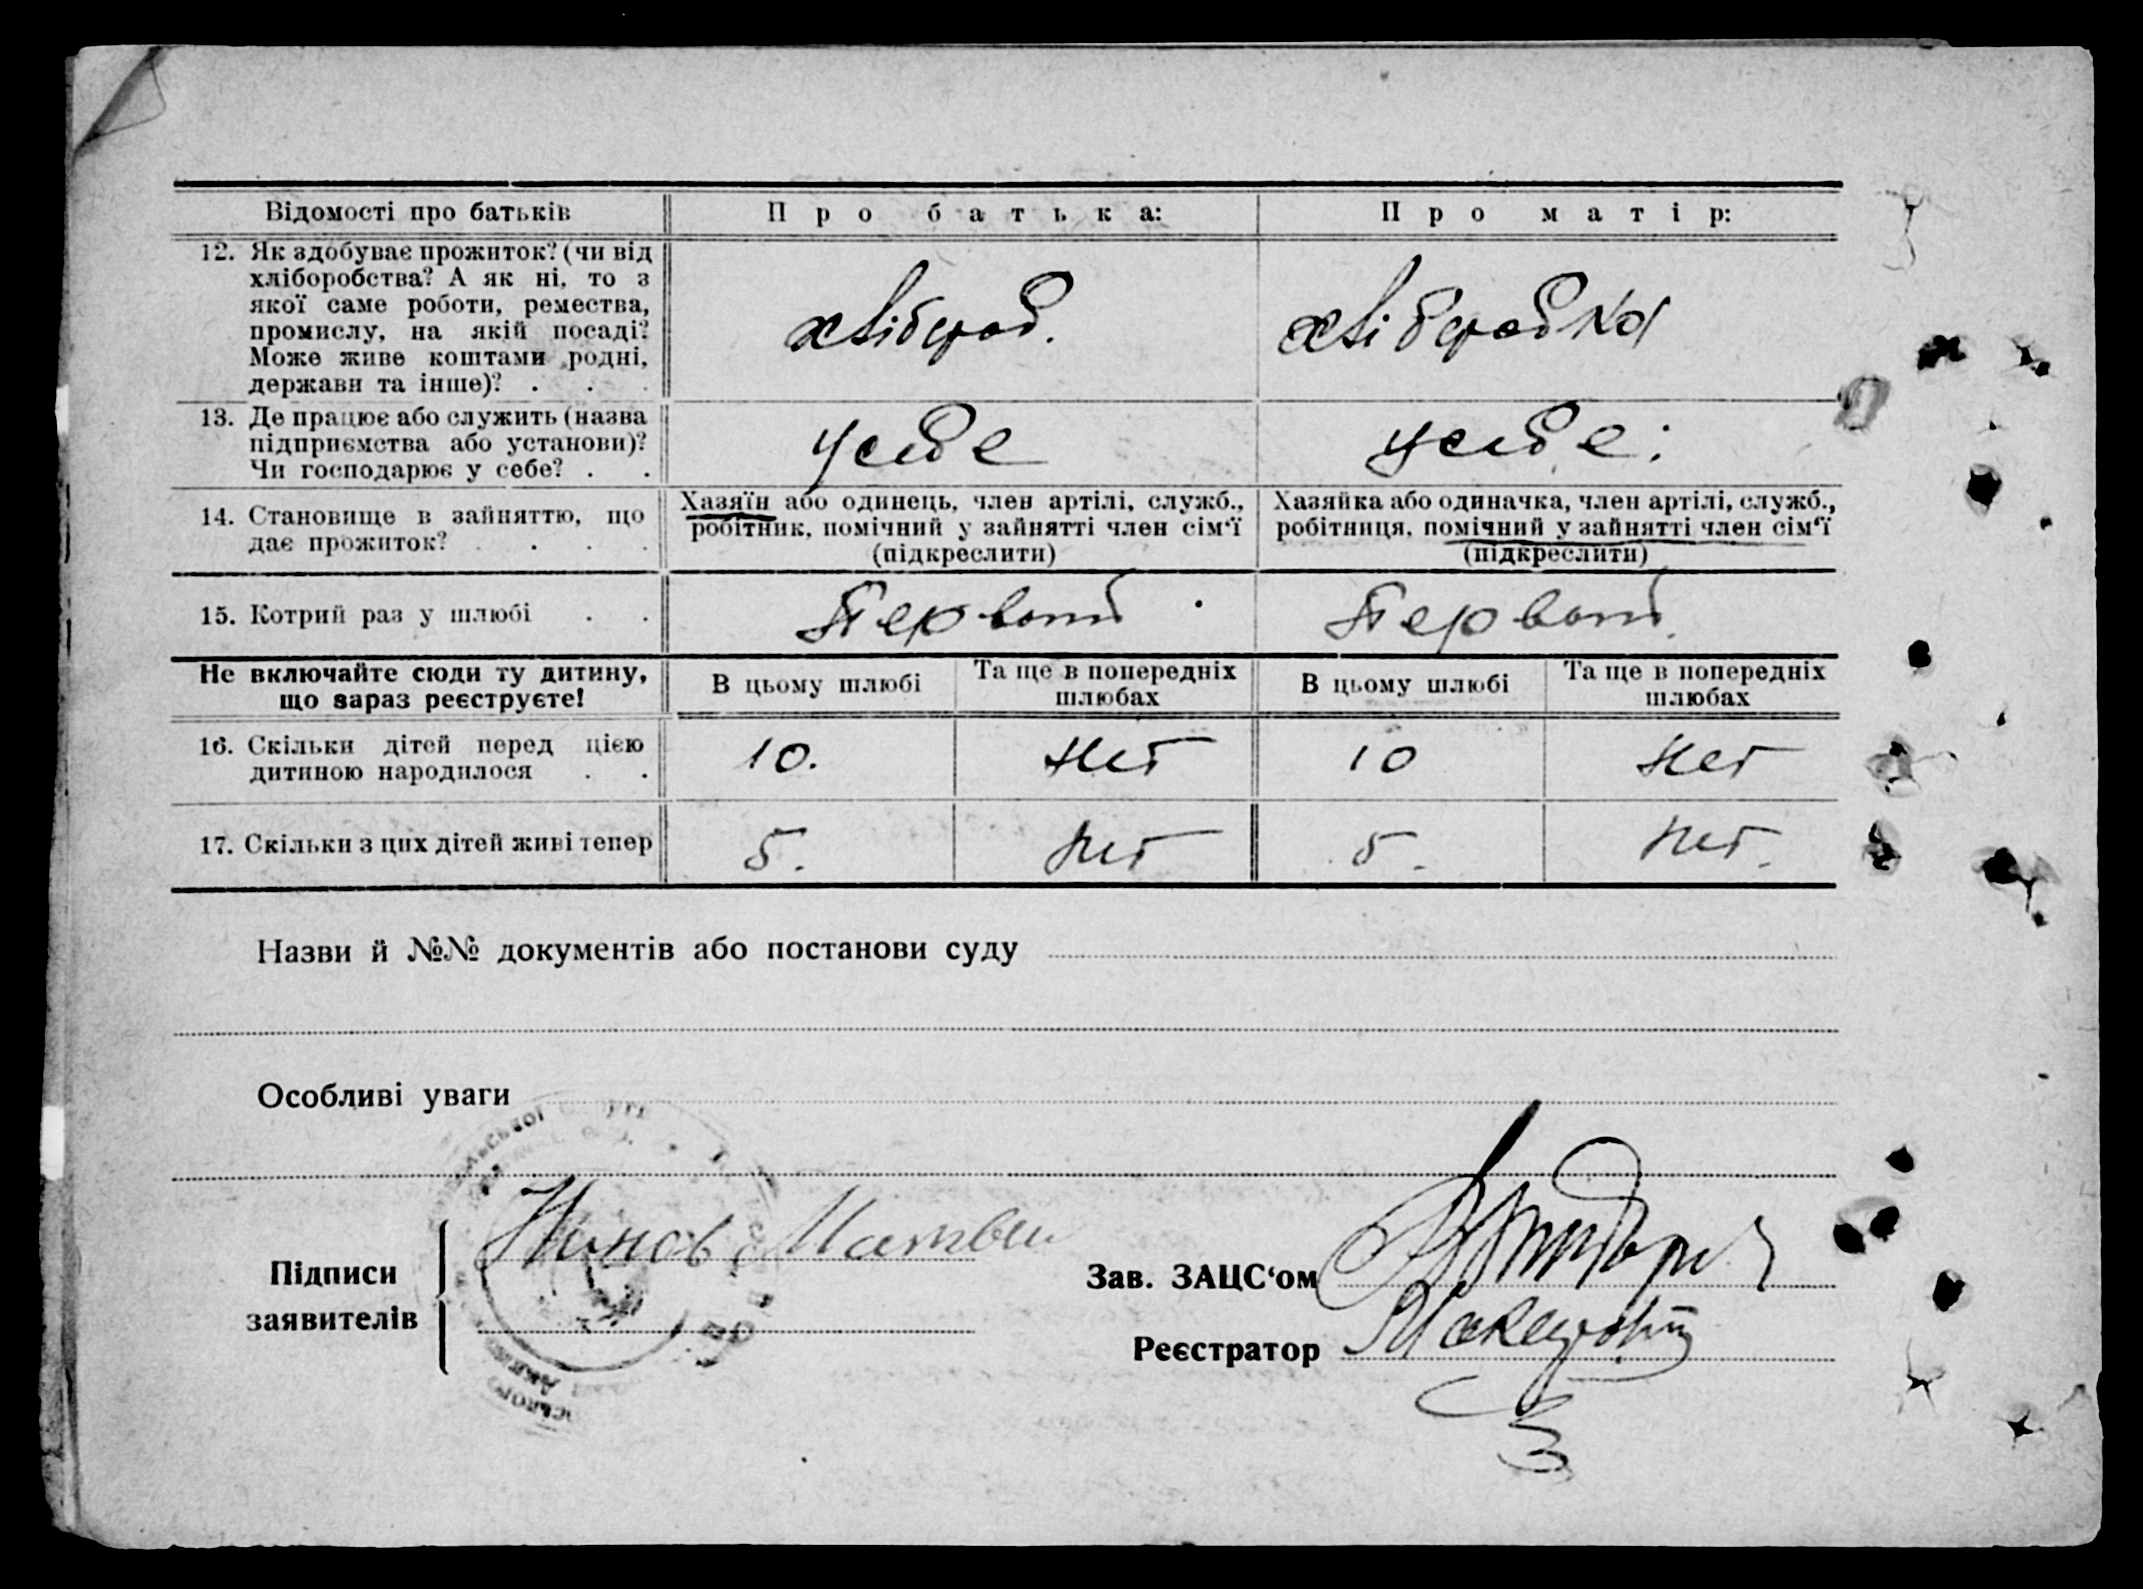 Відомості про батьків
Про батька:
Про матір:
12. Як здобуває прожиток? (чи від
хліборобства? А як ні, то з
якої саме роботи, ремества,
промислу, на якій посаді?
Може живе коштами родні,
держави та інше)? . . .
хлібороб.
хліборобка
13. Де працює або служить (назва
підприємства або установи)?
Чи господарює у себе? . .
у себе
у себе:
14. Становище в зайняттю, що
дає прожиток? . . . .
Хазяїн або одинець, член артілі, служб.,
робітник, помічний у зайнятті член сім'ї
(підкреслити)
Хазяйка або одиначка, член артілі, служб.,
робітниця, помічний у зайнятті член сім'ї
(підкреслити)
15. Котрий раз у шлюбі . .
Первот
Первот
Не включайте сюди ту дитину,
що зараз реєструєте!
В цьому шлюбі
Та ще в попередніх
шлюбах
В цьому шлюбі
Та ще в попередніх
шлюбах
16. Скільки дітей перед цією
дитиною народилося . .
10.
Нет
10
Нет
17. Скільки з цих дітей живі тепер
5.
Нет
5.
Нет.
Назви й №№ документів або постанови суду
Особливі уваги
Підписи
заявителів
Матвеи
Зав. ЗАЦС'ом
Реєстратор